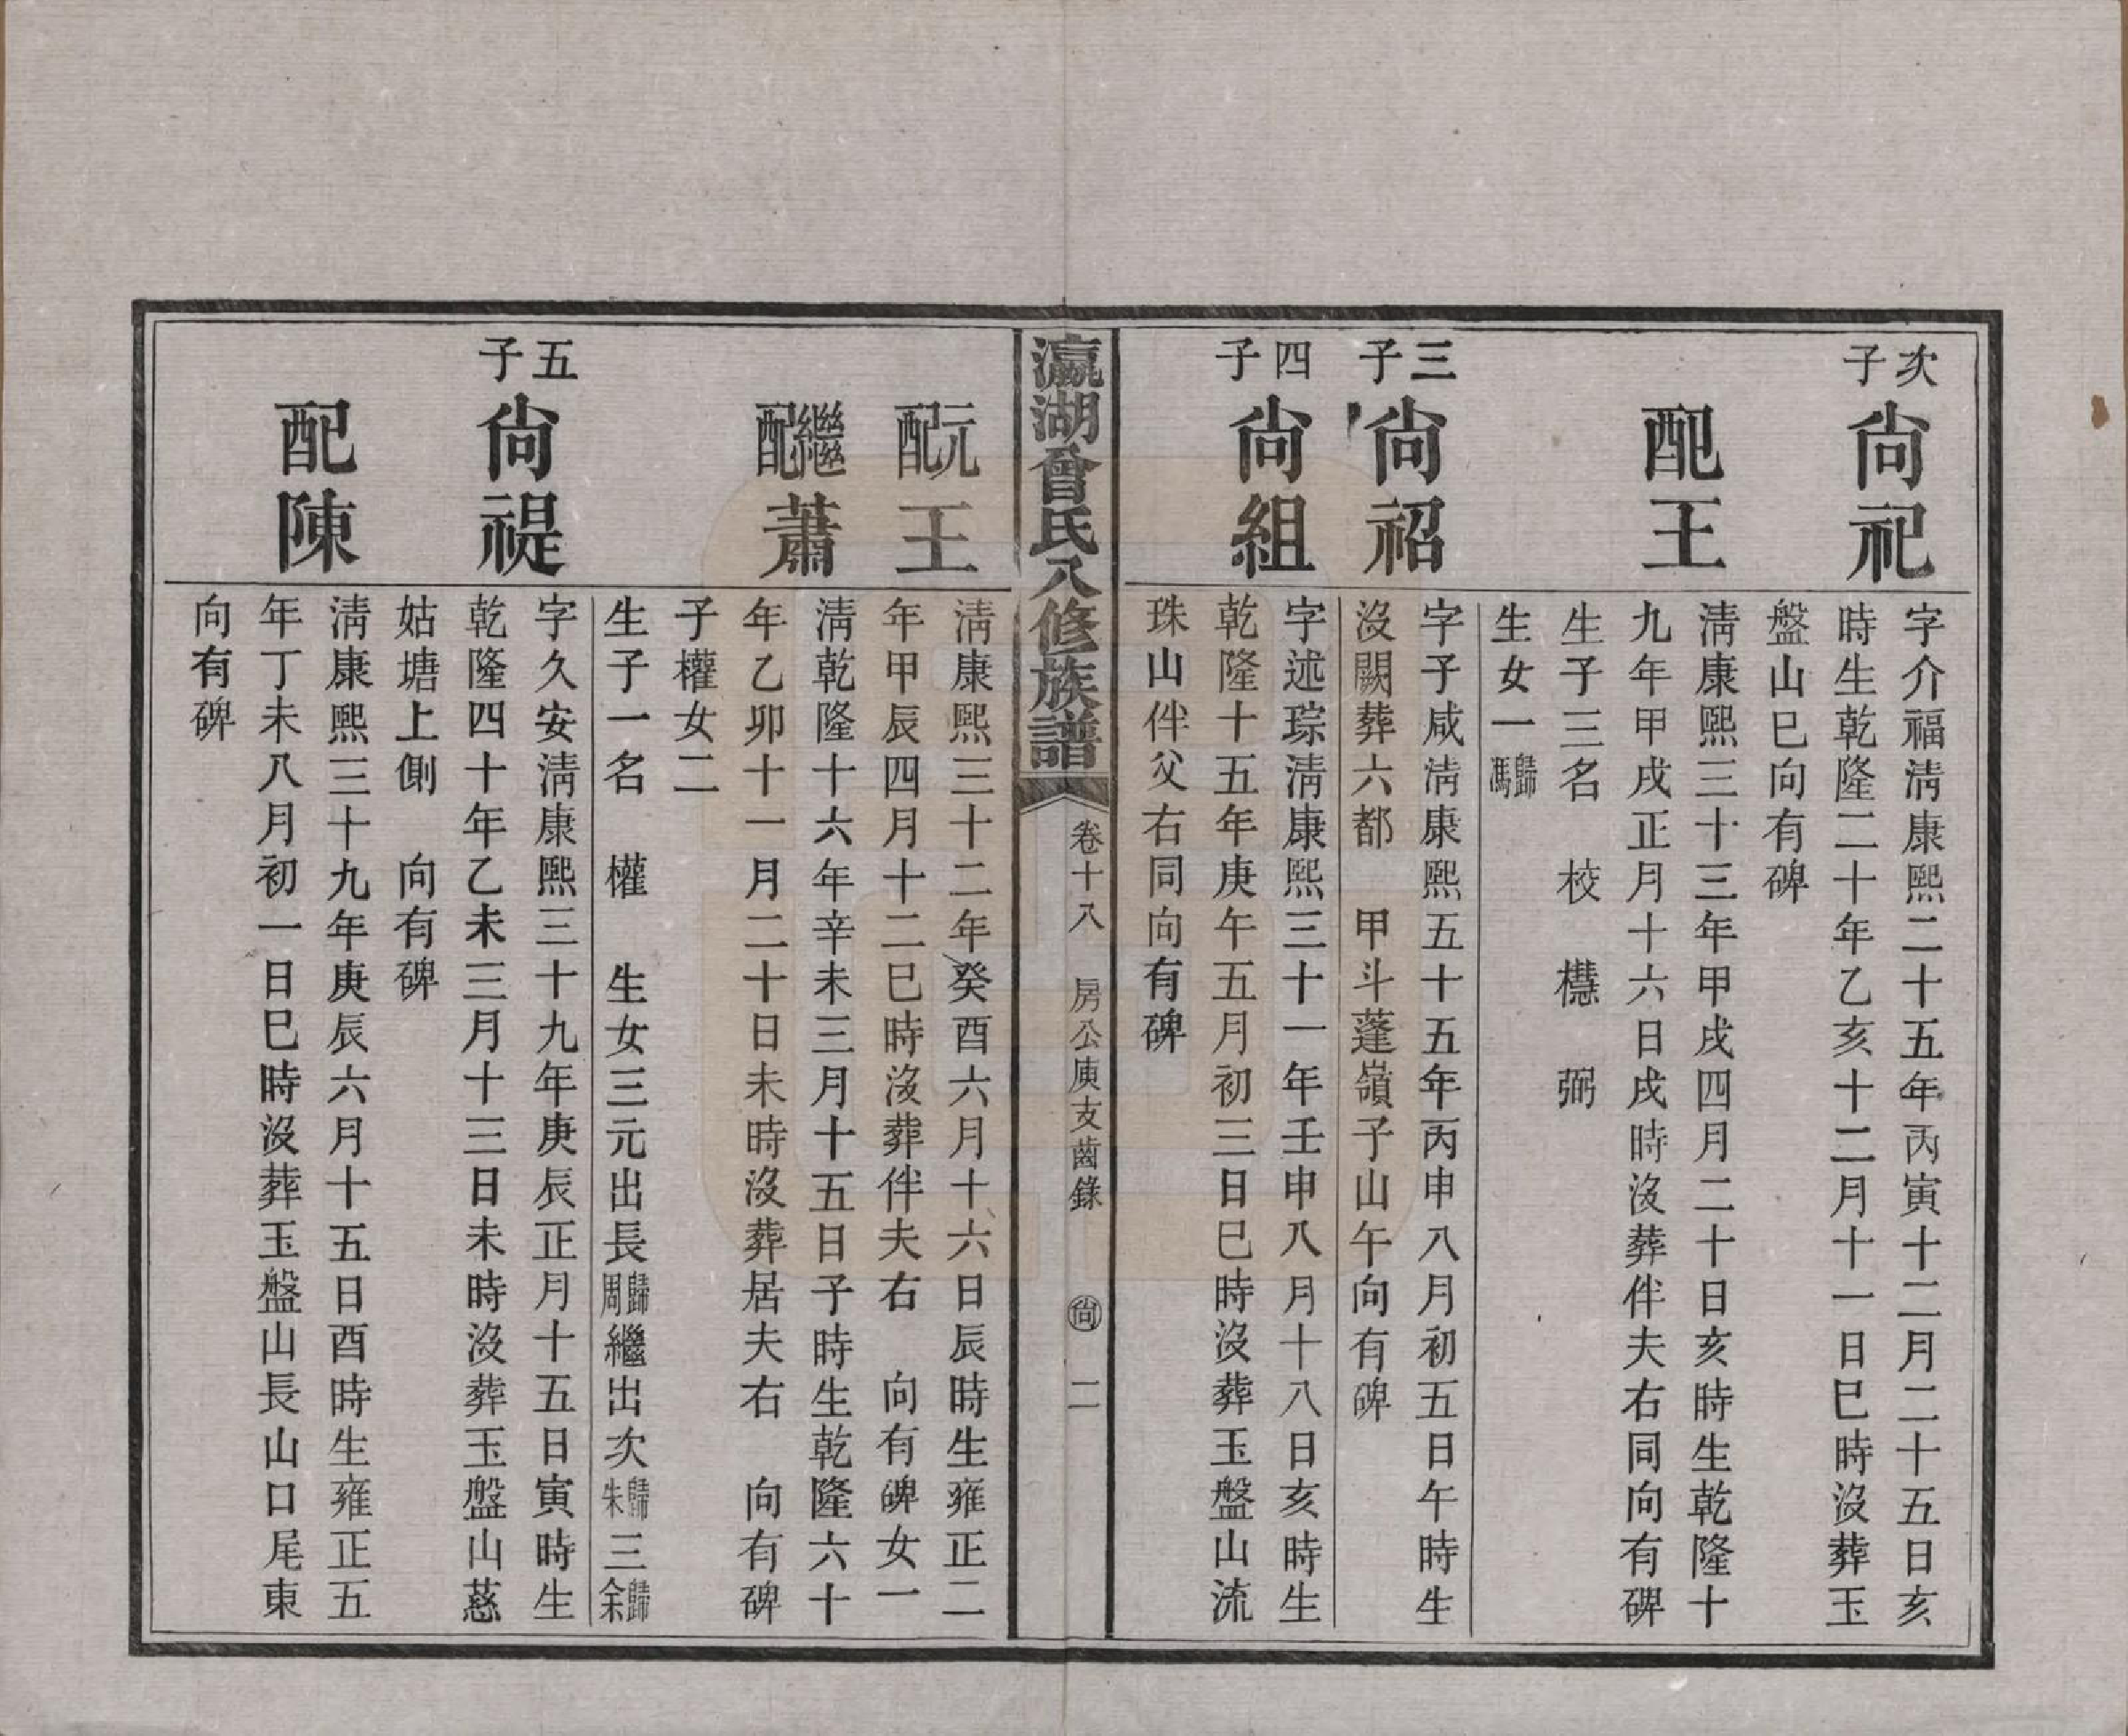 次子
尙祀
字介福淸康熙二十五年丙寅十二月二十五日亥
時生乾隆二十年乙亥十二月十一日巳時沒葬玉
盤山巳向有碑
配王
淸康熙三十三年甲戌四月二十日亥時生乾隆十
九年甲戌正月十六日戌時沒葬伴夫右同向有碑
生子三名　校　櫘　弼
生女一歸馮
三子
尙祒
字子咸淸康熙五十五年丙申八月初五日午時生
沒闕葬六都　甲斗蓬嶺子山午向有碑
四子
尙組
字述琮淸康熙三十一年壬申八月十八日亥時生
乾隆十五年庚午五月初三日巳時沒葬玉盤山流
珠山伴父右同向有碑
瀛湖曾氏八修族譜
卷十八　房公庾支齒錄　尙　二
元配王
淸康熙三十二年癸酉六月十六日辰時生雍正二
年甲辰四月十二巳時沒葬伴夫右　向有碑女一
繼配蕭
淸乾隆十六年辛未三月十五日子時生乾隆六十
年乙卯十一月二十日未時沒葬居夫右　向有碑
子權女二
生子一名　權　生女三元出長歸周繼出次歸朱三歸余
五子
尙禔
字久安淸康熙三十九年庚辰正月十五日寅時生
乾隆四十年乙未三月十三日未時沒葬玉盤山慈
姑塘上側　向有碑
配陳
淸康熙三十九年庚辰六月十五日酉時生雍正五
年丁未八月初一日巳時沒葬玉盤山長山口尾東
向有碑